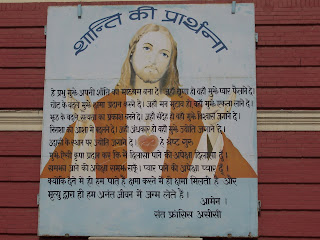 शान्ति की प्रार्थना
हे प्रभु मुझे अपनी शांति का माध्यम बना दे। जहाँ घृणा हो वहाँ मुझे प्यार फैलाने दे।
चोट के बदले मुझे क्षमा प्रदान करने दे। जहाँ मन मुटाव हो वहाँ मुझे एकता लाने दे।
झूठ के बदले सच्चाई का प्रकाश करने दे। जहाँ संदेह हो वहाँ मुझे विश्वास जगाने दे।
निराशा को आशा में बदलने दे। जहाँ अंधकार हो वहाँ मुझे ज्योति जलाने दे।
उदासी के स्थान पर उल्लास फैलाने दे। हे ईष्ट गुरु
मुझे ऐसी कृपा प्रदान कर कि मैं दिलासा पाने की अपेक्षा दिलासा दूँ।
समझा जाने की अपेक्षा समझ सकूँ। प्यार पाने की अपेक्षा प्यार दूँ।
क्योंकि देने में ही हम पाते हैं क्षमा करने में ही क्षमा मिलती है और
मृत्यु द्वारा ही हम अनंत जीवन में जन्म लेते है।
आमेन।
संत फ्रांसिस असीसी